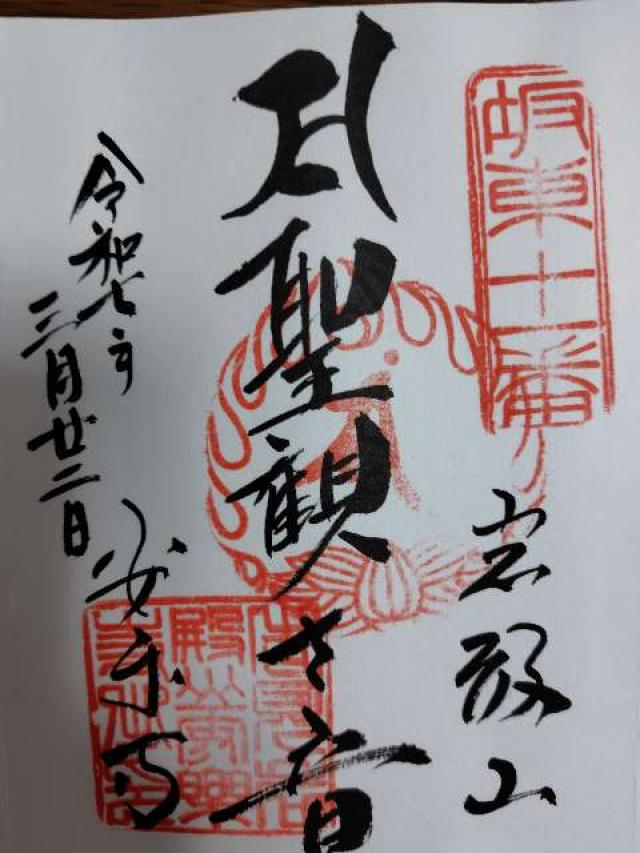 坂東十一番
岩殿山
聖観世音
安楽寺
令和七年
三月廿二日